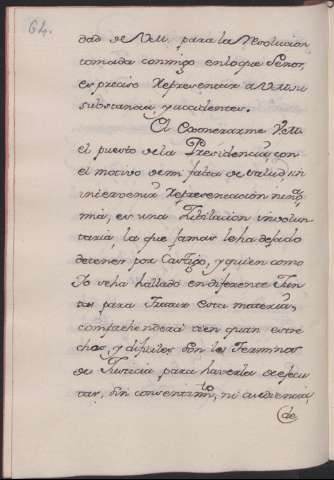 64.
dad de VM. para la Resolucion
tomada conmigo en lo que Señor,
es preciso Representar a VM. su
substancia, y accidentes.
El Exonerarme VM.
el puesto de la Presidencia, con
el motivo de mi falta de salud, sin
intervenir Representacion ning.ª
mia, es una Jubilacion involun-
taria, la que jamas leha dejado
detener por Castigo, y quien como
Yo seha hallado en diferentes Jun-
tas para tratar esta materia,
comprehenderà vien quan estre-
chos, y dificiles son los Terminos
de Justicia para haverla de execu-
tar, sin consentim.to, ni audiencia
de